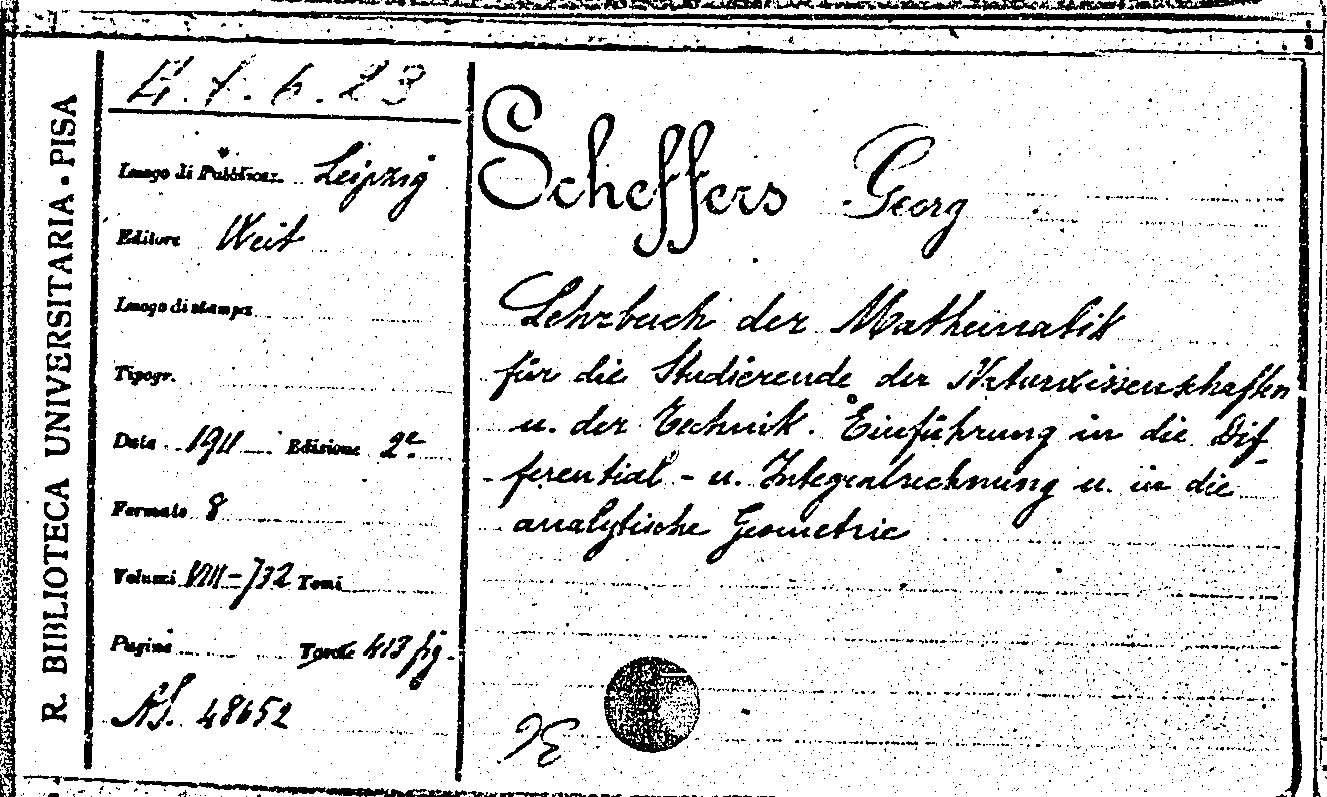 R. BIBLIOTECA UNIVERSITARIA - PISA
Luogo di Pubblicaz. Leipzig
Editore Weit
Luogo di stampa
Tipogr.
Data 1911 Edizione 2ª
Formato 8
Volumi VIII-732 Tomi
Pagine Tavole 413 fig.
48652
Scheffers Georg
Lehrbuch der Mathematik
für die Studierende der Naturwissenschaften
u. der Technik. Einführung in die Dif-
ferential - u. Integralrechnung u. in die
analytische Geometrie